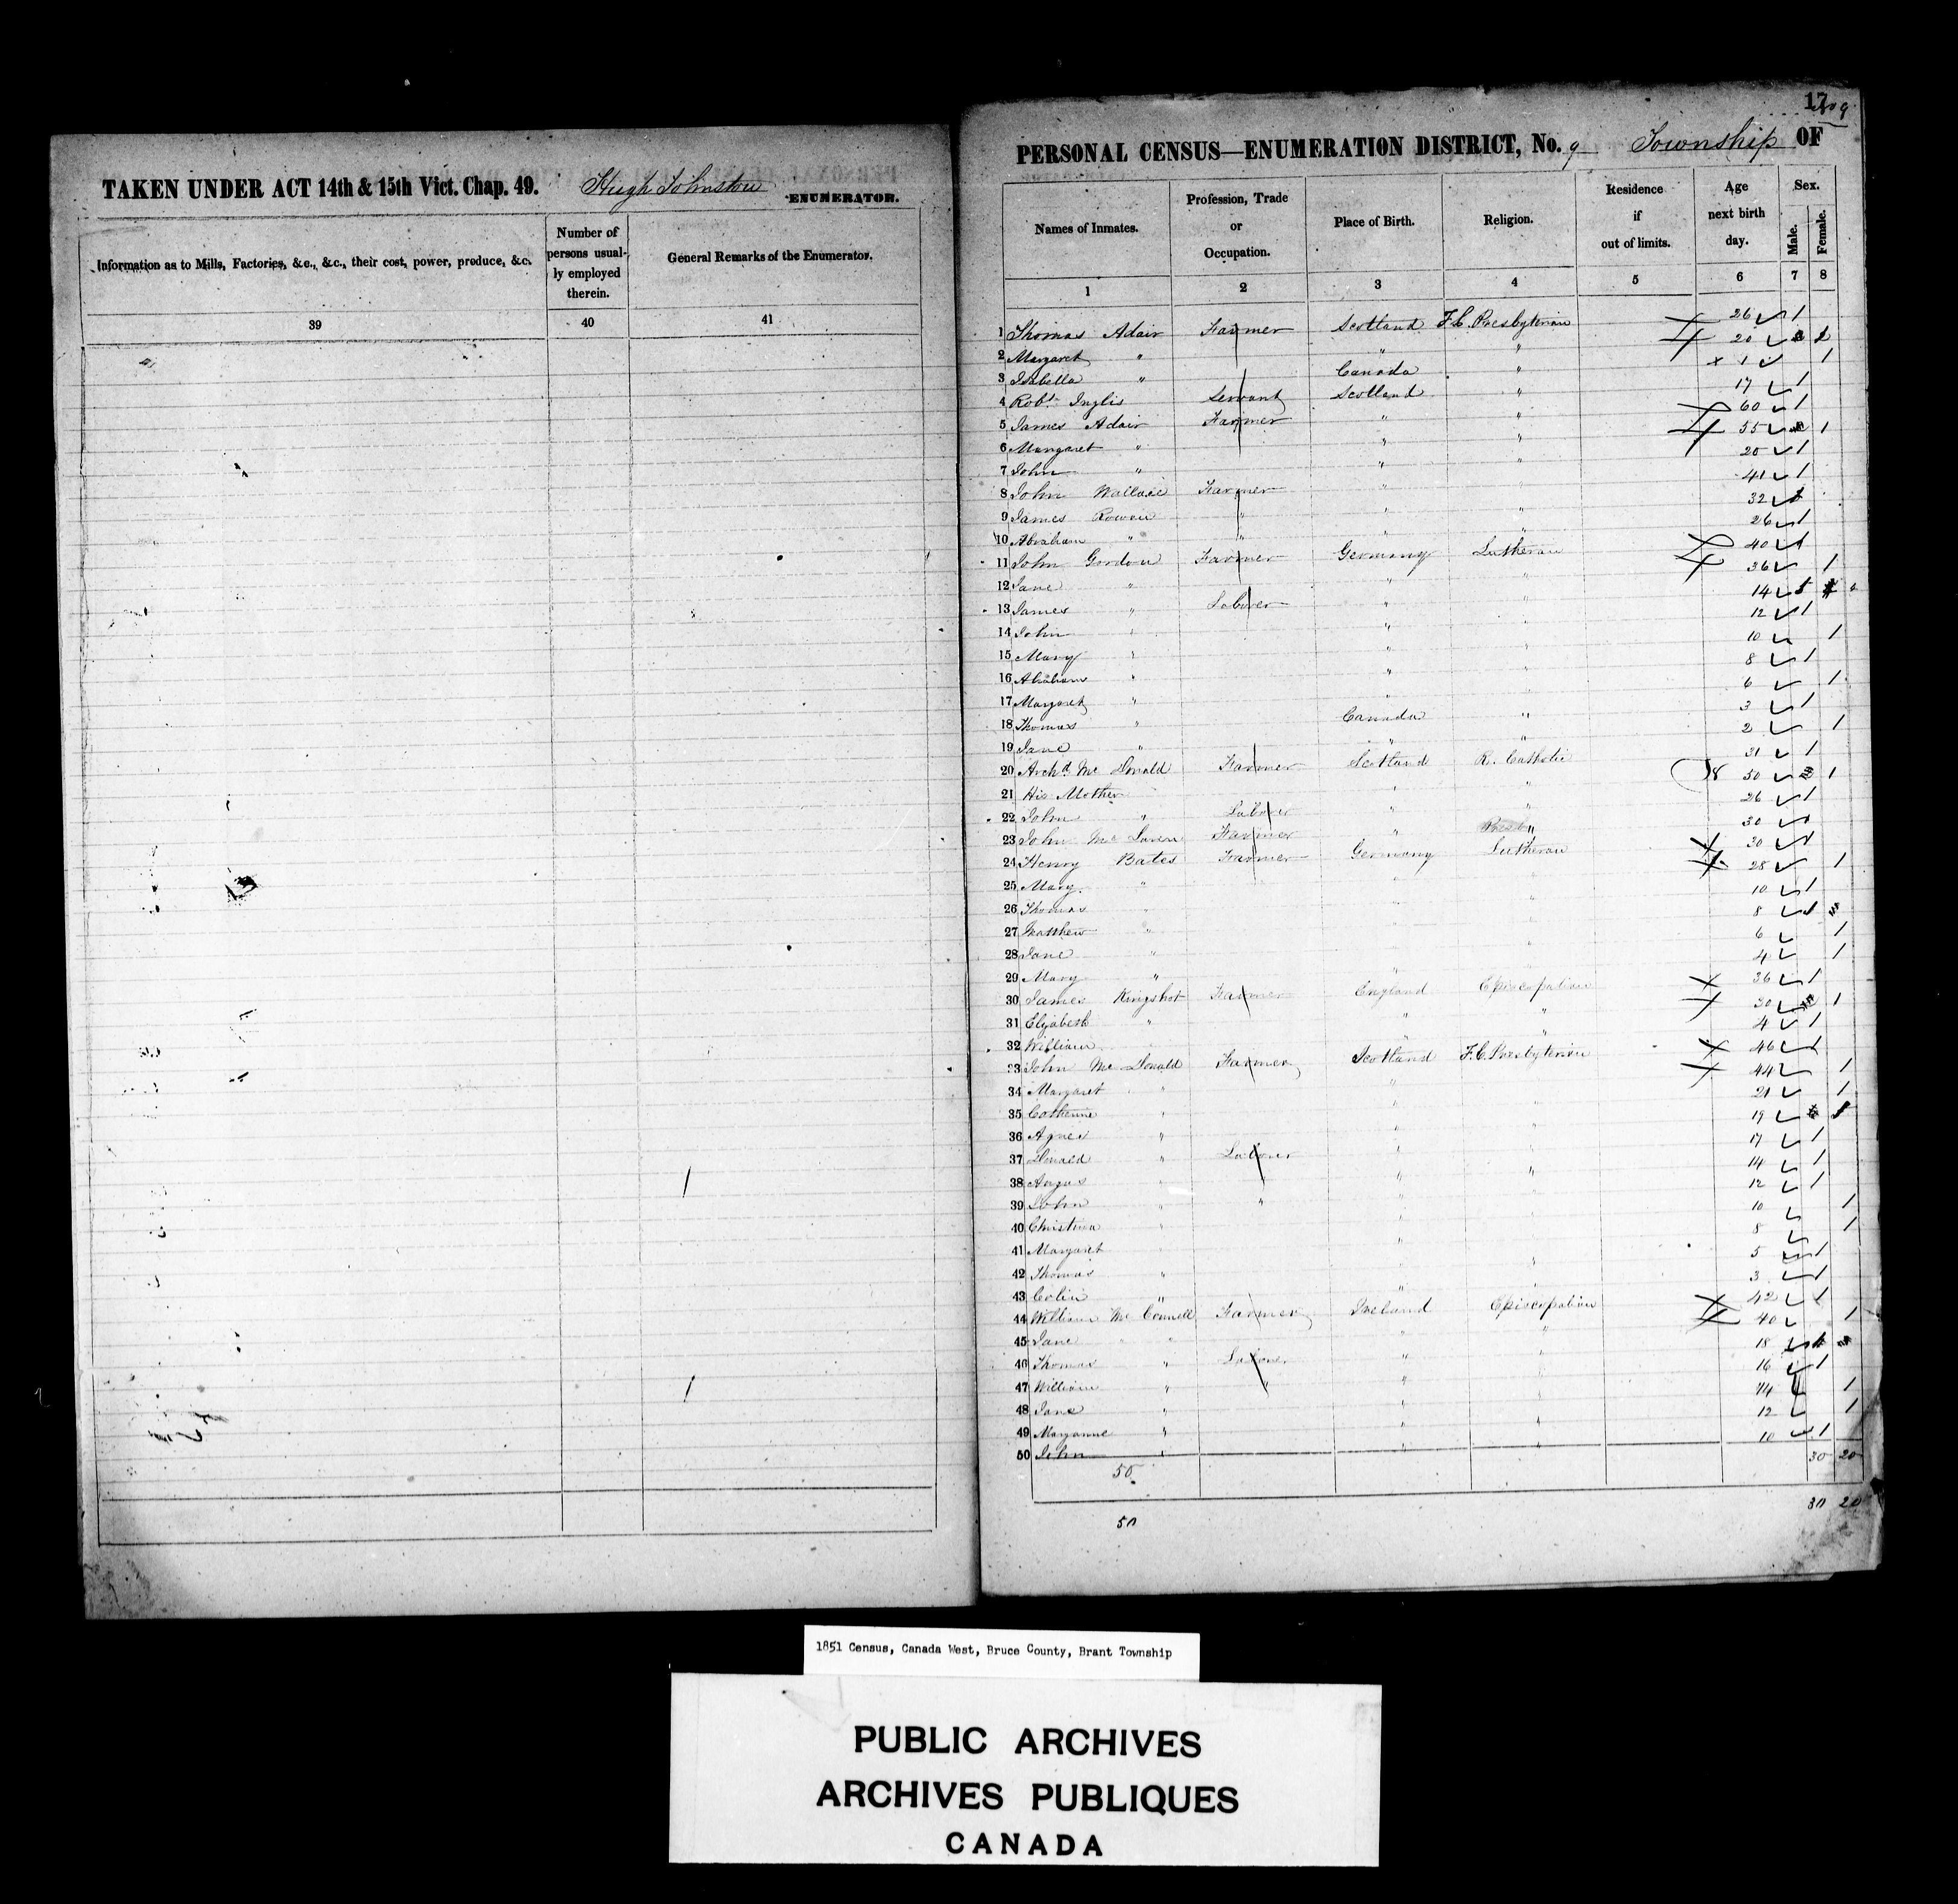 TAKEN UNDER ACT 14th & 15th Vict. Chap. 49. Hugh Johnston ENUMERATOR.
Information as to Mills, Factories, &c., &c., their cost, power, produce, &c.
Number of persons usually employed therein.
General Remarks of the Enumerator.
39 40 41
17
PERSONAL CENSUS—ENUMERATION DISTRICT, No. 9 Township OF
Names of Inmates. Profession, Trade or Occupation. Place of Birth. Religion. Residence if out of limits. Age next birth day. Sex. Male. Female.
1 2 3 4 5 6 7 8
1 Thomas Adair Farmer Scotland F.C. Presbyterian 26 1
2 Margaret " " " 20 1
3 Isabella " Canada " 1 1
4 Robt. Inglis Servant Scotland " 17 1
5 James Adair Farmer " " 60 1
6 Margaret " " " 55 1
7 John " " " 20 1
8 John Wallace Farmer " " 41 1
9 James Rowan " " " 32 1
10 Abraham " " " " 26 1
11 John Gordon Farmer Germany Lutheran 40 1
12 Jane " " " 36 1
13 James " Laborer " " 14 1
14 John " " " 12 1
15 Mary " " " 10 1
16 Abraham " " " 8 1
17 Margaret " " " 6 1
18 Thomas " Canada " 3 1
19 Jane " " " 2 1
20 Archd. Mc Donald Farmer Scotland R. Catholic 31 1
21 His Mother " " 50 1
22 John " Laborer " " 26 1
23 John Mc Laren Farmer " " 30 1
24 Henry Bates Farmer Germany Lutheran 30 1
25 Mary " " " 28 1
26 Thomas " " " 10 1
27 Matthew " " " 8 1
28 Jane " " " 6 1
29 Mary " " " 4 1
30 James Kingshot Farmer England Episcopalian 36 1
31 Elizabeth " " " 30 1
32 William " " " 4 1
33 John Mc Donald Farmer Scotland F.C. Presbyterian 46 1
34 Margaret " " " 44 1
35 Catherine " " " 21 1
36 Agnes " " " 19 1
37 Donald " Laborer " " 17 1
38 Angus " " " 14 1
39 John " " " " 12 1
40 Christina " " " 10 1
41 Margaret " " " 8 1
42 Thomas " " " 5 1
43 Colin " " " 3 1
44 William Mc Connell Farmer Ireland Episcopalian 42 1
45 Jane " " " 40 1
46 Thomas " Laborer " " 18 1
47 William " " " " 16 1
48 Jane " " " 14 1
49 Maryanne " " " 12 1
50 John " " " 10 1
50 30 20
50 30 20
1851 Census, Canada West, Bruce County, Brant Township
PUBLIC ARCHIVES
ARCHIVES PUBLIQUES
CANADA